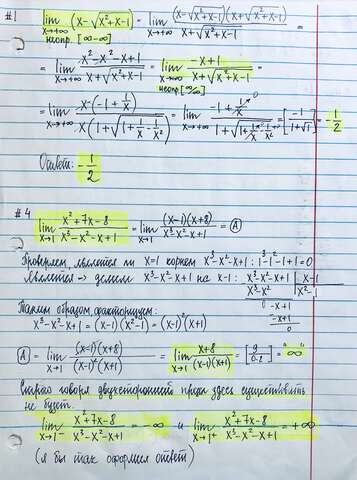 #1 lim x→+∞ (x-√(x²+x-1)) = lim x→+∞ (x-√(x²+x-1))(x+√(x²+x-1)) / (x+√(x²+x-1)) =
неопр. [∞-∞]
= lim x→+∞ (x²-x²-x+1) / (x+√(x²+x-1)) = lim x→+∞ (-x+1) / (x+√(x²+x-1)) =
неопр [∞/∞]
= lim x→+∞ x·(-1+1/x) / (x(1+√(1+1/x-1/x²))) = lim x→+∞ (-1+1/x→0) / (1+√(1+1/x-1/x²)) = [-1/(1+√1)] = -1/2
Ответ: -1/2
#4 lim x→1 (x²+7x-8) / (x³-x²-x+1) = lim x→1 (x-1)(x+8) / (x³-x²-x+1) = Ⓐ
Проверяем, является ли x=1 корнем x³-x²-x+1: 1³-1²-1+1=0
Является => делим x³-x²-x+1 на x-1: x³-x²-x+1 | x-1
x³-x² | x²-1
0 -x+1
Таким образом, факторизуем: -x+1
x³-x²-x+1 = (x-1)(x²-1) = (x-1)²(x+1) 0
Ⓐ = lim x→1 (x-1)(x+8) / ((x-1)²(x+1)) = lim x→1 (x+8) / ((x-1)(x+1)) = [9/(0·2)] = "∞"
Строго говоря двухсторонний предел здесь существовать
не будет.
lim x→1⁻ (x²+7x-8) / (x³-x²-x+1) = -∞ и lim x→1⁺ (x²+7x-8) / (x³-x²-x+1) = +∞
(я бы так оформил ответ)